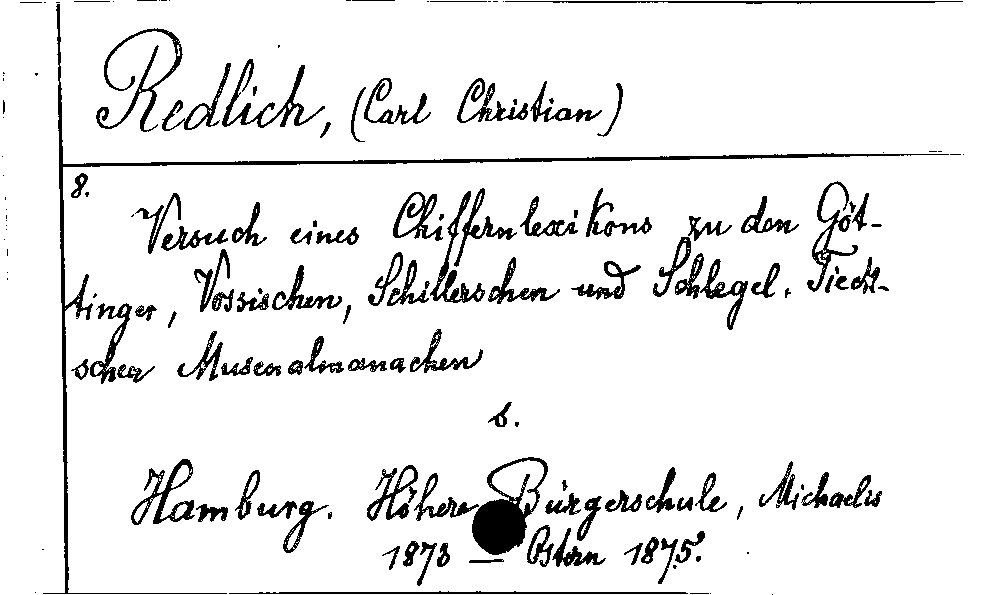 Redlich, (Carl Christian)
8.
Versuch eines Chiffernlexikons zu den Göt-
tinger, Vossischen, Schillerschen und Schlegel. Tieck-
schen Musenalmanachen
s.
Hamburg. Höhere Bürgerschule, Michaelis
1873 — Ostern 1875.